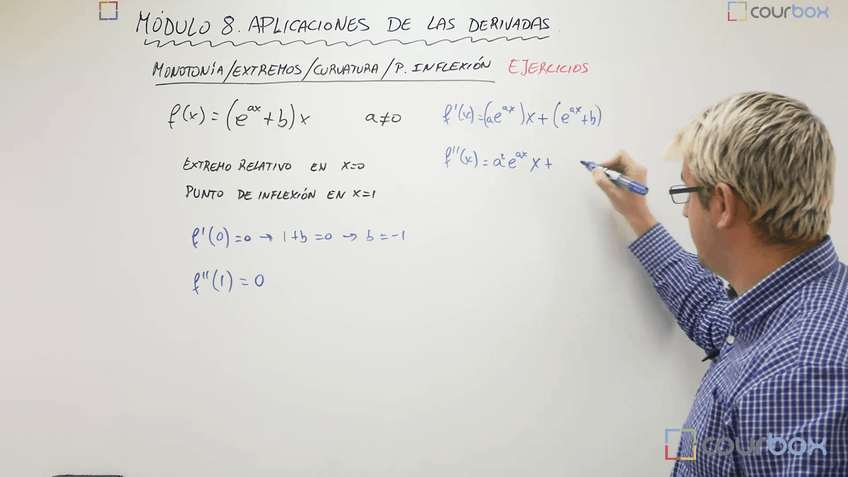 MÓDULO 8. APLICACIONES DE LAS DERIVADAS
courbox
MONOTONÍA/EXTREMOS/CURVATURA/P. INFLEXIÓN EJERCICIOS
f(x) = (e^{ax} + b) x a ≠ 0
f'(x) = (ae^{ax})x + (e^{ax} + b)
f''(x) = a²e^{ax} x +
EXTREMO RELATIVO EN X=0
PUNTO DE INFLEXIÓN EN X=1
f'(0) = 0 → 1+b = 0 → b = -1
f''(1) = 0
courbox